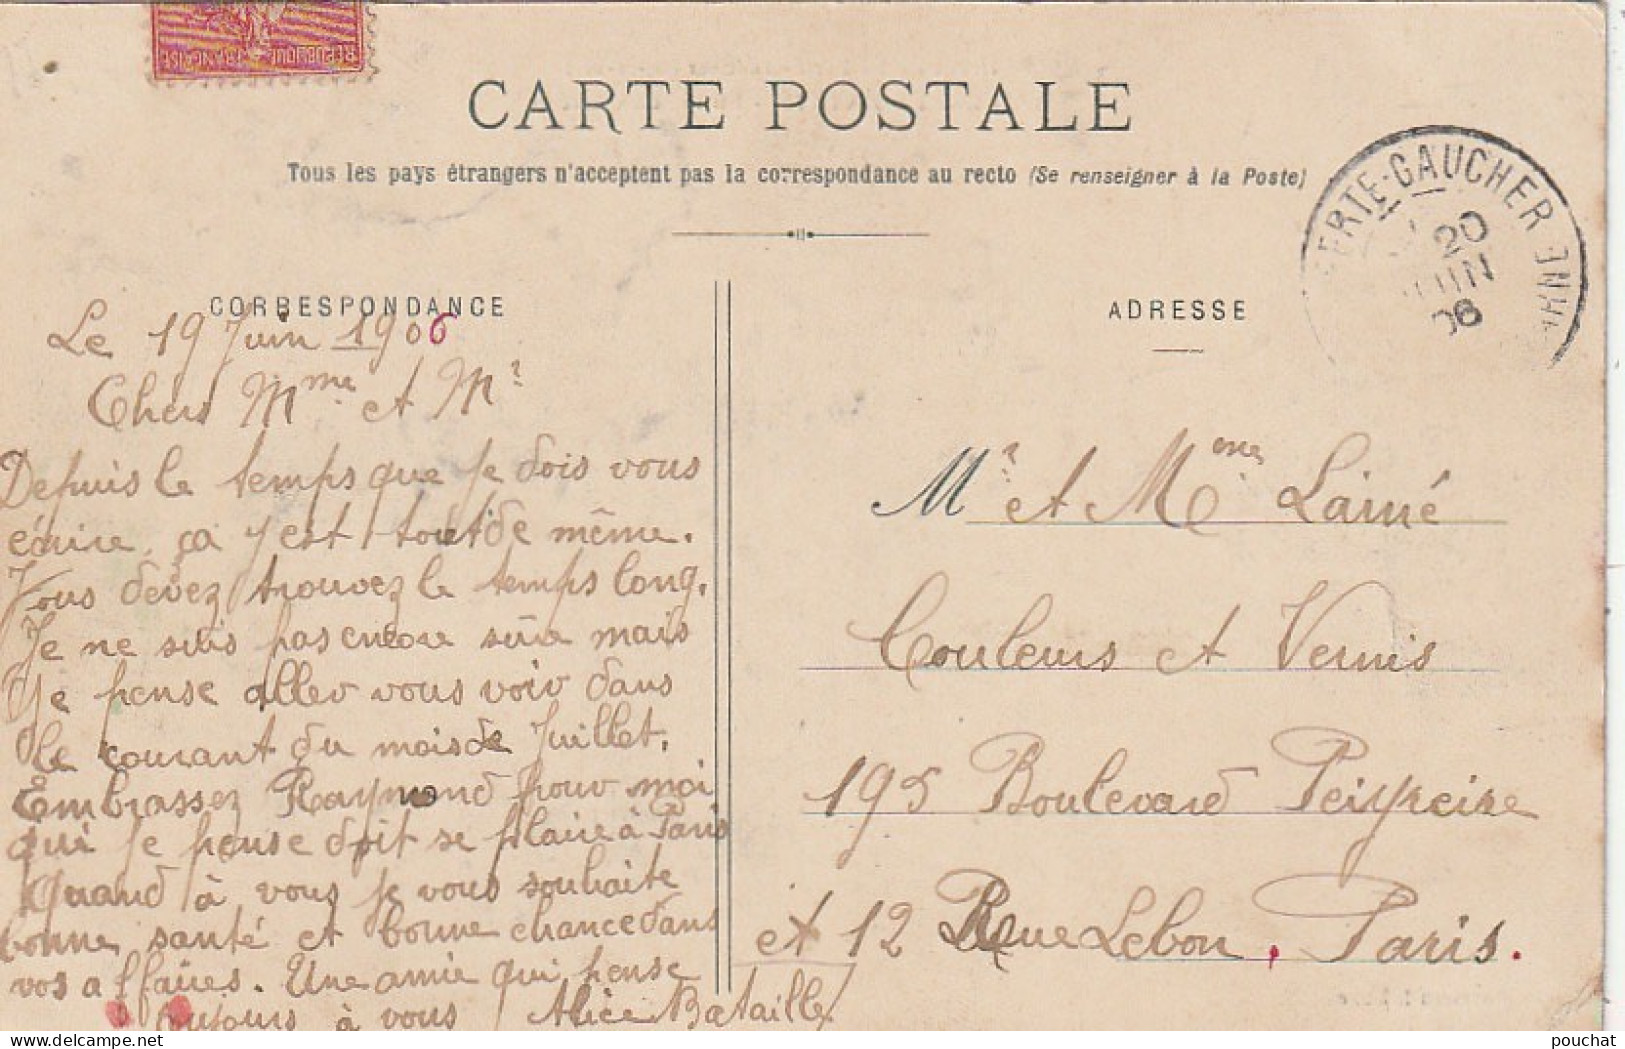 RÉPUBLIQUE FRANÇAISE
CARTE POSTALE
Tous les pays étrangers n'acceptent pas la correspondance au recto (Se renseigner à la Poste)
ERTE-GAUCHER
20
JUIN
06
CORRESPONDANCE
Le 19 Juin 1906
Chers Mme et Mr
Depuis le temps que je dois vous
écrire, ça y est tout de même.
Vous devez trouvez le temps long.
Je ne suis pas encore sûre mais
Je pense aller vous voir dans
le courant du mois de Juillet.
Embrassez Raymond pour moi
qui je pense doit se plaire à Paris
Quand à vous je vous souhaite
bonne santé et bonne chance dans
vos affaires. Une amie qui pense
toujours à vous Alice Bataille
ADRESSE
Mr et Mme Lainé
Couleurs et Vernis
195 Boulevard Peiyreire
et 12 Rue Lebon, Paris.
delcampe.net
pouchat